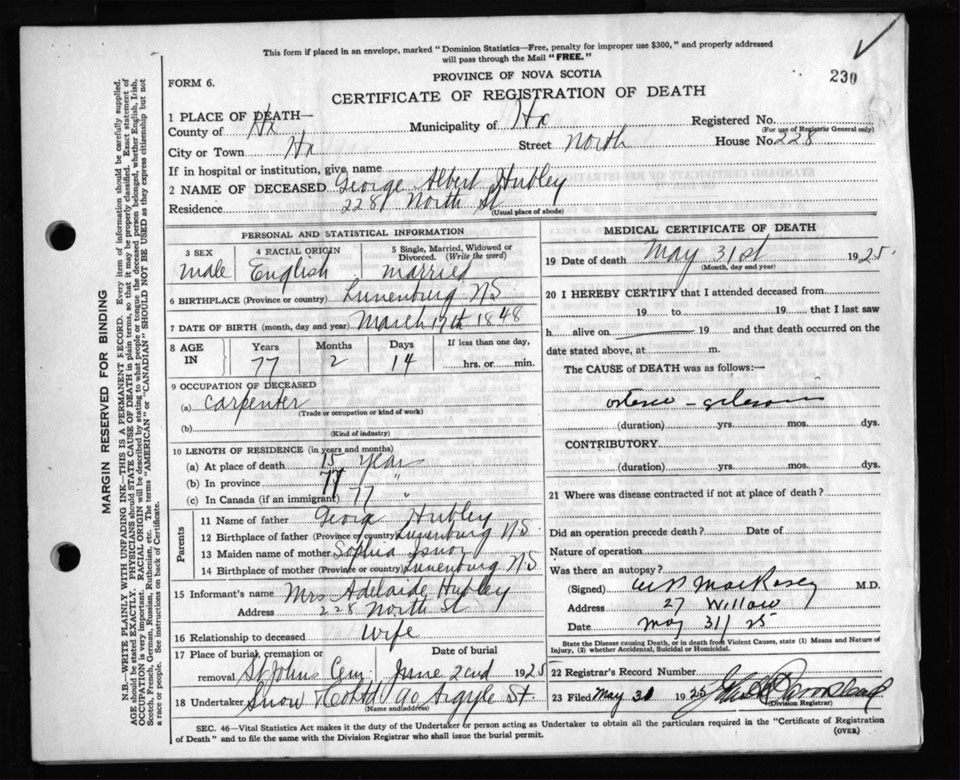 This form if placed in an envelope, marked "Dominion Statistics—Free, penalty for improper use $300," and properly addressed
will pass through the Mail "FREE."
PROVINCE OF NOVA SCOTIA
230
FORM 6.
CERTIFICATE OF REGISTRATION OF DEATH
1 PLACE OF DEATH—
County of Hx Municipality of Hx Registered No.
(For use of Registrar General only)
City or Town Hx Street North House No. 228
If in hospital or institution, give name
2 NAME OF DECEASED George Albert Hubley
Residence 228 North St
(Usual place of abode)
PERSONAL AND STATISTICAL INFORMATION
3 SEX 4 RACIAL ORIGIN 5 Single, Married, Widowed or
Divorced. (Write the word)
male English married
6 BIRTHPLACE (Province or country) Lunenburg NS
7 DATE OF BIRTH (month, day and year) March 17th 1848
8 AGE IN Years Months Days If less than one day,
77 2 14 hrs. or min.
9 OCCUPATION OF DECEASED
(a) carpenter
(Trade or occupation or kind of work)
(b)
(Kind of industry)
10 LENGTH OF RESIDENCE (in years and months)
(a) At place of death 15 year
(b) In province 77 "
(c) In Canada (if an immigrant) 77 "
Parents
11 Name of father Hubley
12 Birthplace of father (Province or country) Lunenburg NS
13 Maiden name of mother Sophia
14 Birthplace of mother (Province or country) Lunenburg NS
15 Informant's name Mrs Adelaide Hubley
Address 228 North St
16 Relationship to deceased wife
17 Place of burial, cremation or Date of burial
removal St Johns Cem, June 2nd 1925
18 Undertaker Snow & Co Ltd 90 Argyle St.
(Name and address)
MEDICAL CERTIFICATE OF DEATH
19 Date of death May 31st 1925
(Month, day and year)
20 I HEREBY CERTIFY that I attended deceased from
19 to 19 that I last saw
h alive on 19 and that death occurred on the
date stated above, at m.
The CAUSE of DEATH was as follows:—
(duration) yrs. mos. dys.
CONTRIBUTORY
(duration) yrs. mos. dys.
21 Where was disease contracted if not at place of death?
Did an operation precede death? Date of
Nature of operation
Was there an autopsy?
(Signed) M.D.
Address 27 Willow
Date May 31/25
State the Disease causing Death, or in death from Violent Causes, state (1) Means and Nature of
Injury, (2) whether Accidental, Suicidal or Homicidal.
22 Registrar's Record Number
23 Filed May 31 1925
(Division Registrar)
SEC. 46—Vital Statistics Act makes it the duty of the Undertaker or person acting as Undertaker to obtain all the particulars required in the "Certificate of Registration
of Death" and to file the same with the Division Registrar who shall issue the burial permit.
(OVER)
MARGIN RESERVED FOR BINDING
N.B.—WRITE PLAINLY WITH UNFADING INK—THIS IS A PERMANENT RECORD. Every item of information should be carefully supplied.
AGE should be stated EXACTLY. PHYSICIANS should STATE CAUSE OF DEATH in plain terms, so that it may be properly classified. Exact statement of
OCCUPATION is very important. RACIAL ORIGIN will be described by stating to what people or tongue the deceased person belonged, whether English, Irish,
Scotch, French, German, Russian, Ruthenian, etc. The terms "AMERICAN" or "CANADIAN" SHOULD NOT BE USED as they express citizenship but not
a race or people. See instructions on back of Certificate.